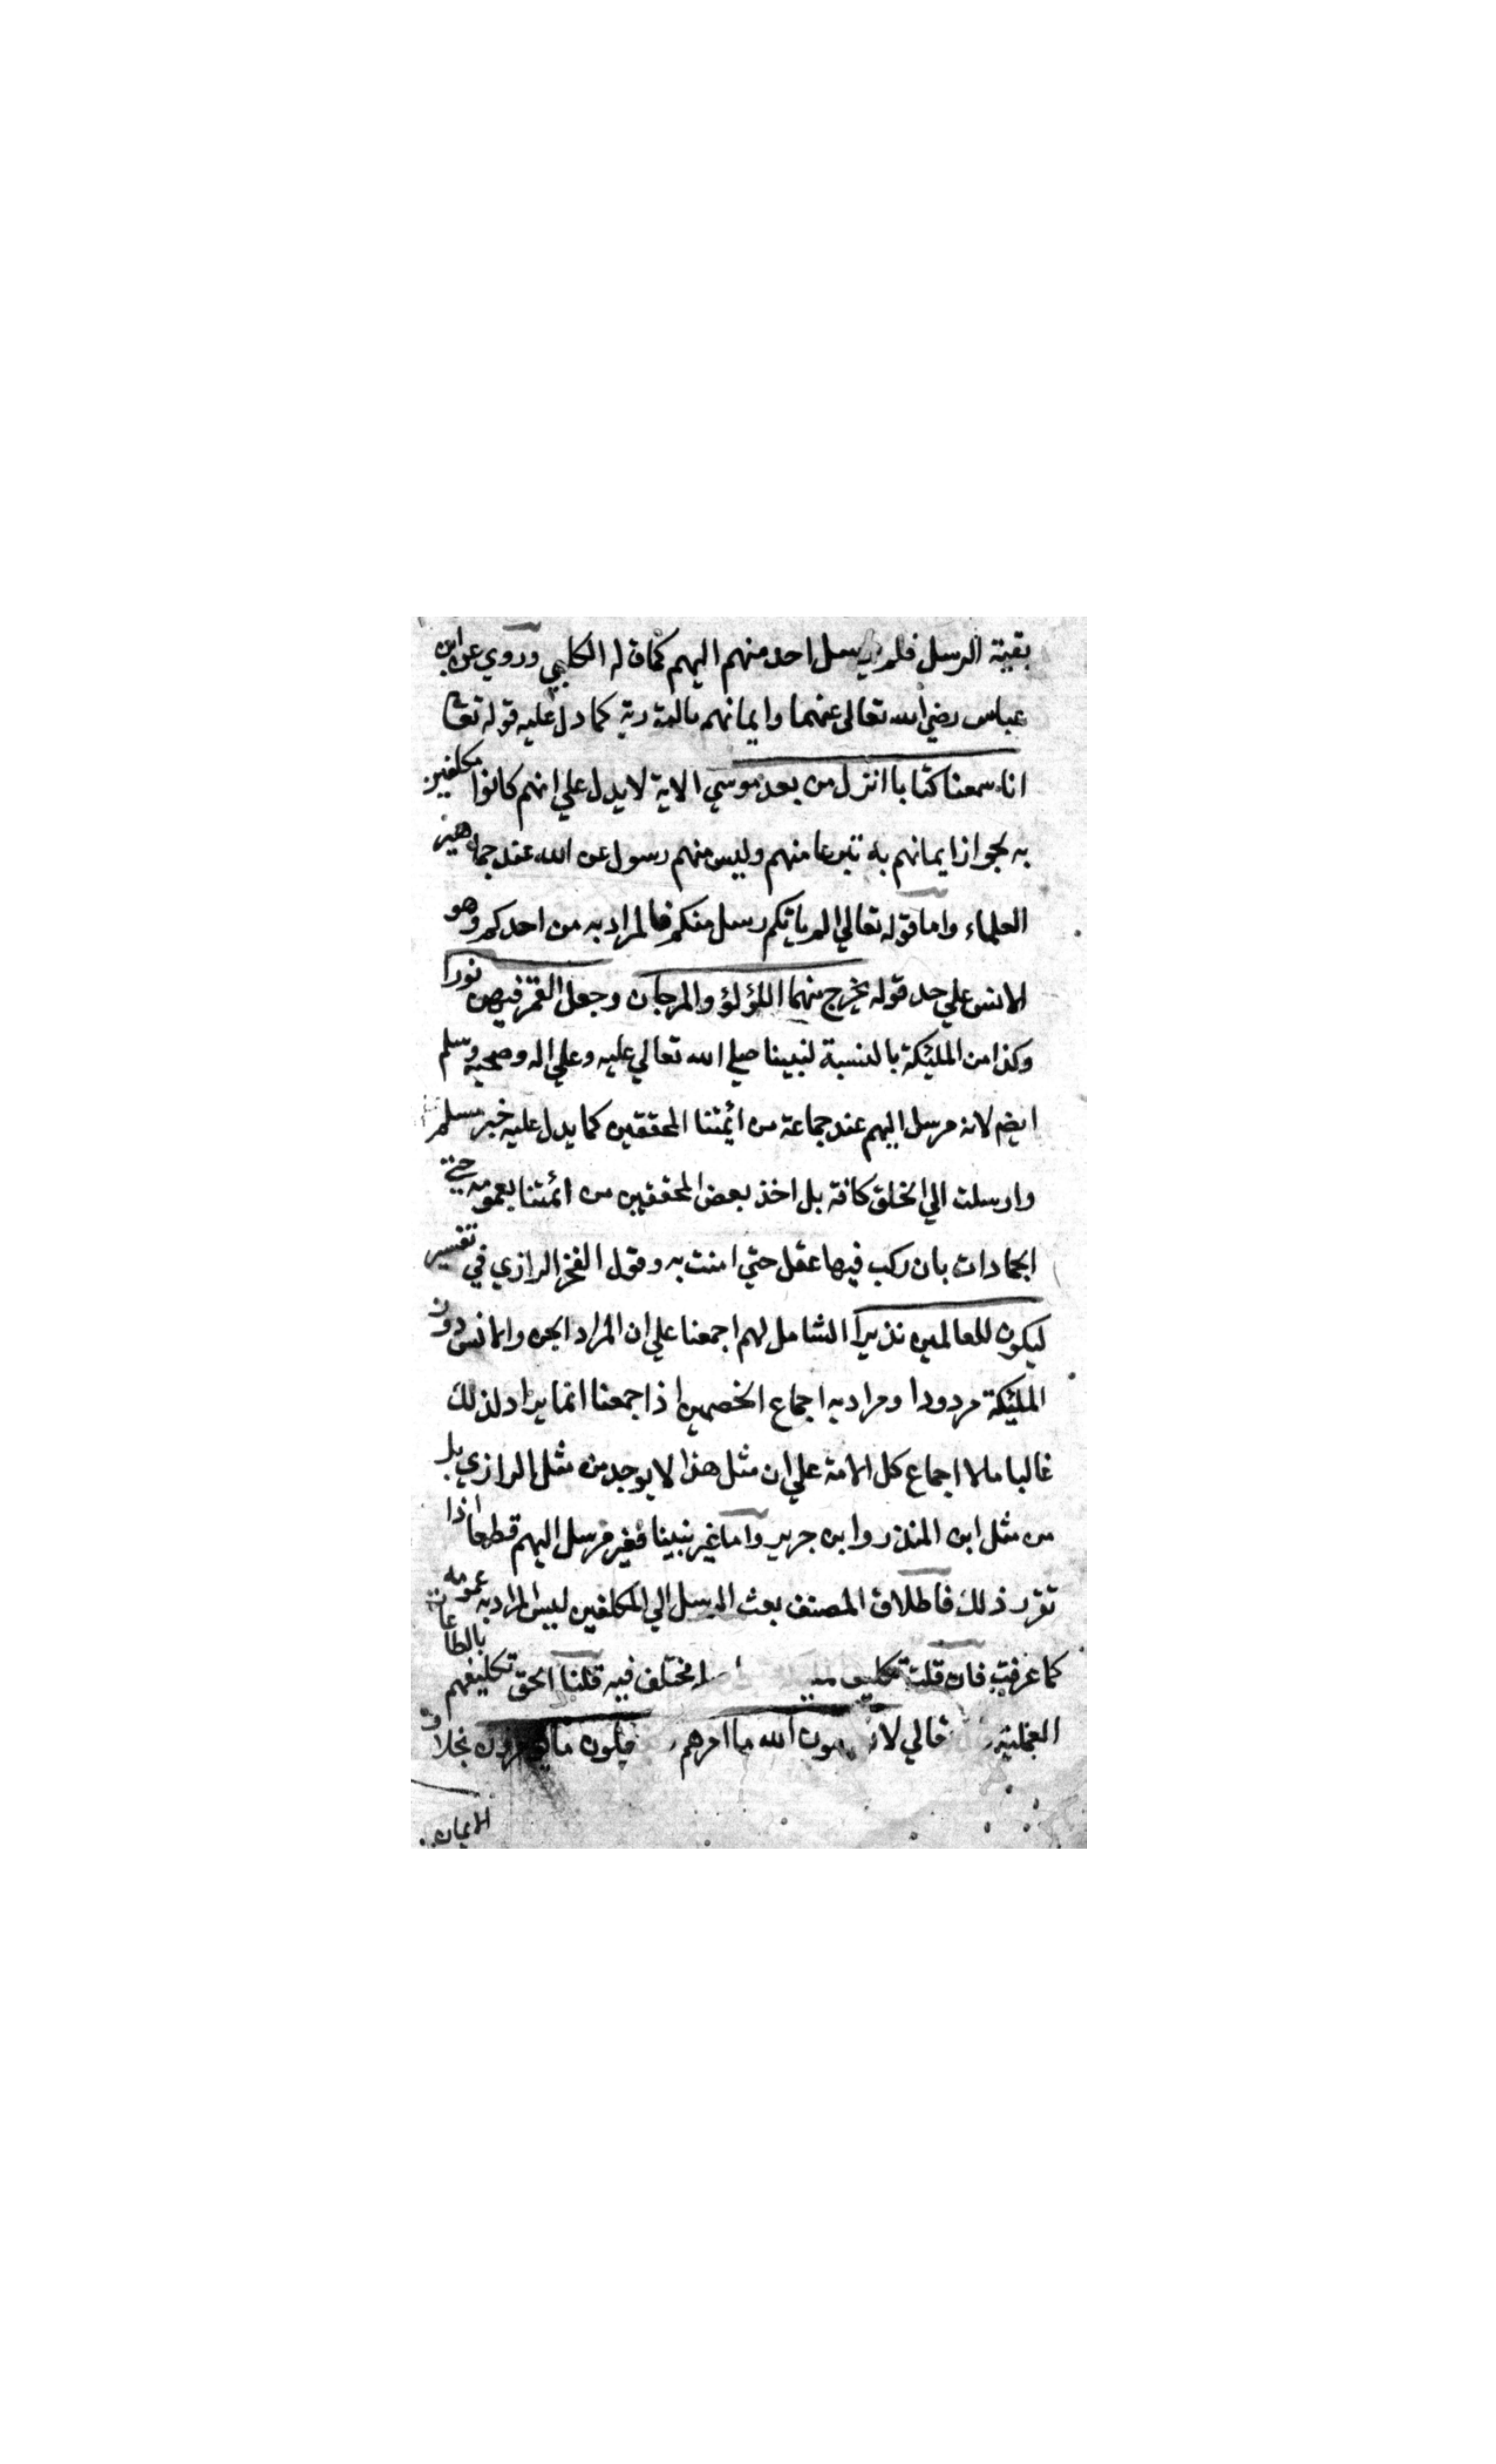 بقية الرسل فلم يرسل احد منهم اليهم كما قاله الكلبي وروي عن ابن
عباس رضي الله تعالى عنهما وايمانهم بالتورية كما دل عليه قوله تعا
انا سمعنا كتابا انزل من بعد موسي الاية لا يدل علي انهم كانوا مكلفين
به لجواز ايمانهم به تبرعا منهم وليس منهم رسول عن الله عند جماهير
العلماء واما قوله تعالي الم ياتكم رسل منكم فالمراد به من احدكم وهو
الانس علي حد قوله يخرج منهما اللؤلؤ والمرجان وجعل القمر فيهن نورا
وكذا من المليكة بالنسبة لنبينا صلي الله تعالي عليه وعلي اله وصحبه وسلم
ايضم لانه مرسل اليهم عند جماعة من ائمتنا المحققين كما يدل عليه خبر مسلم
وارسلت الي الخلق كافة بل اخذ بعض المحققين من ائمتنا بعمومه حتي
الجمادات بان ركب فيها عقل حتي امنت به وقول الفخر الرازي في تفسير
ليكون للعالمين نذيرا الشامل لهم اجمعنا علي ان المراد الجن والانس دون
المليكة مردودا ومراد به اجماع الخصمين اذ اجمعنا انما يراد لذلك
غالبا مالا اجماع كل الامة علي ان مثل هذا لا يوجد من مثل الرازي بل
من مثل ابن المنذر وابن جرير واما غير نبينا فغير مرسل اليهم قطعا اذا
تقرر ذلك فاطلاق المصنف بعث الرسل الي المكلفين ليس المراد به عمومه
كما عرفت فان قلت تكليف مختلف فيه قلنا الحق تكليفهم بالطاعات
العملية قالي لا الله ما امرهم ما بخلاف
الايمان